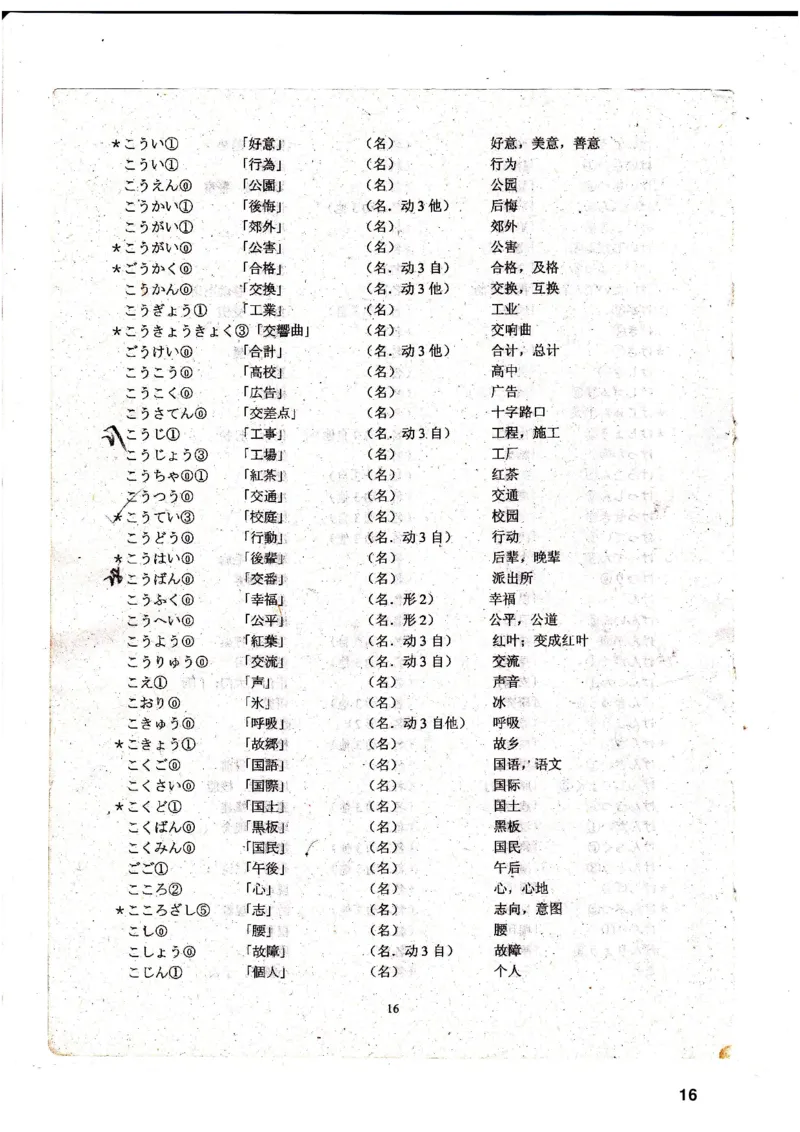 *こうい① 「好意」 (名) 好意，美意，善意
こうい① 「行為」 (名) 行为
こうえん⓪ 「公園」 (名) 公园
こうかい① 「後悔」 (名．动3他) 后悔
こうがい① 「郊外」 (名) 郊外
*こうがい⓪ 「公害」 (名) 公害
*ごうかく⓪ 「合格」 (名．动3自) 合格，及格
こうかん⓪ 「交換」 (名．动3他) 交换，互换
こうぎょう① 「工業」 (名) 工业
*こうきょうきょく③ 「交響曲」 (名) 交响曲
ごうけい⓪ 「合計」 (名．动3他) 合计，总计
こうこう⓪ 「高校」 (名) 高中
こうこく⓪ 「広告」 (名) 广告
こうさてん⓪ 「交差点」 (名) 十字路口
こうじ① 「工事」 (名．动3自) 工程，施工
こうじょう③ 「工場」 (名) 工厂
こうちゃ⓪① 「紅茶」 (名) 红茶
こうつう⓪ 「交通」 (名) 交通
*こうてい③ 「校庭」 (名) 校园
こうどう⓪ 「行動」 (名．动3自) 行动
*こうはい⓪ 「後輩」 (名) 后辈，晚辈
こうばん⓪ 「交番」 (名) 派出所
こうふく⓪ 「幸福」 (名．形2) 幸福
こうへい⓪ 「公平」 (名．形2) 公平，公道
こうよう⓪ 「紅葉」 (名．动3自) 红叶；变成红叶
こうりゅう⓪ 「交流」 (名．动3自) 交流
こえ① 「声」 (名) 声音
こおり⓪ 「氷」 (名) 冰
こきゅう⓪ 「呼吸」 (名．动3自他) 呼吸
*こきょう① 「故郷」 (名) 故乡
こくご⓪ 「国語」 (名) 国语，语文
こくさい⓪ 「国際」 (名) 国际
*こくど① 「国土」 (名) 国土
こくばん⓪ 「黒板」 (名) 黑板
こくみん⓪ 「国民」 (名) 国民
ごご① 「午後」 (名) 午后
こころ② 「心」 (名) 心，心地
*こころざし⑤ 「志」 (名) 志向，意图
こし⓪ 「腰」 (名) 腰
こしょう⓪ 「故障」 (名．动3自) 故障
こじん① 「個人」 (名) 个人
16
16